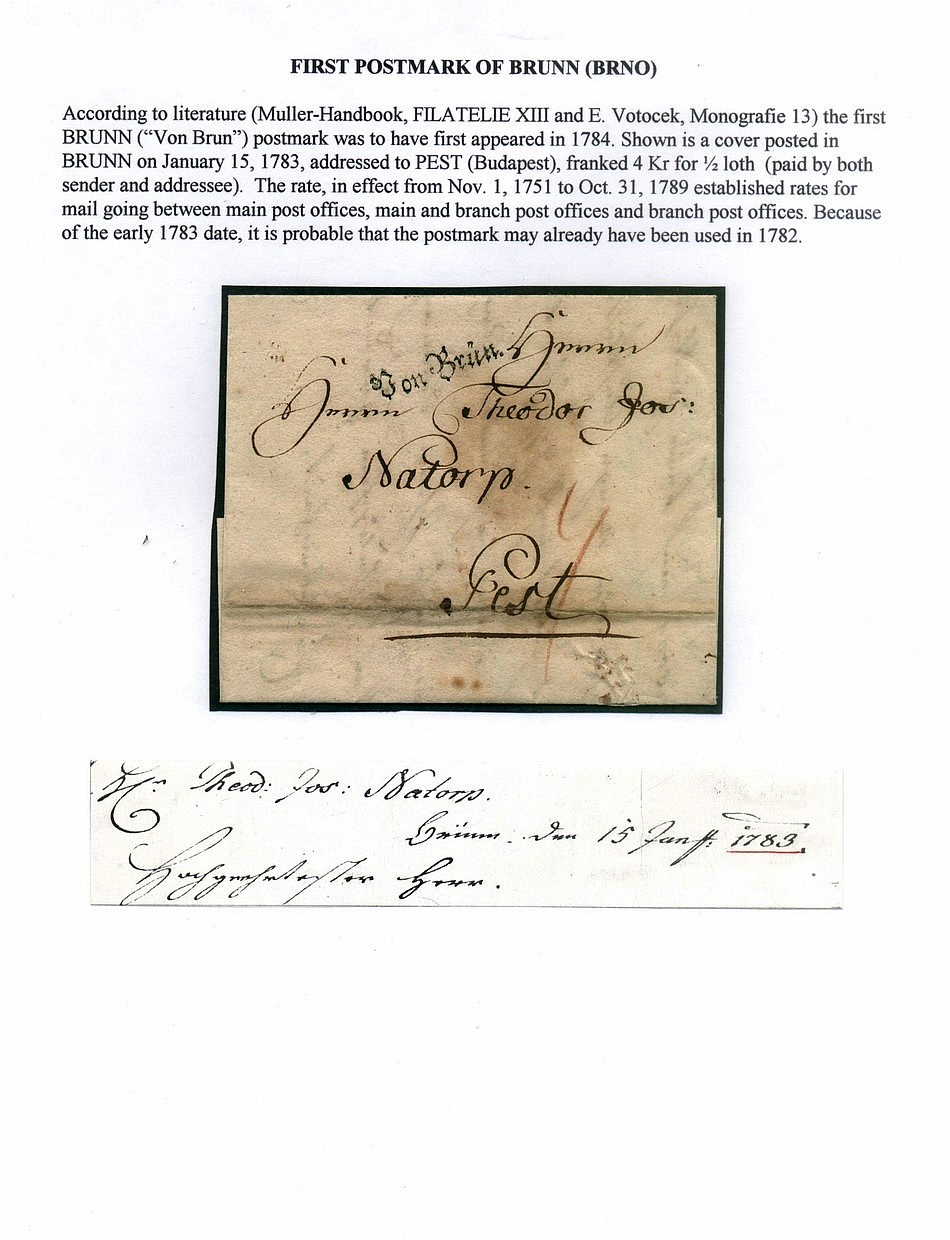 FIRST POSTMARK OF BRUNN (BRNO)
According to literature (Muller-Handbook, FILATELIE XIII and E. Votocek, Monografie 13) the first
BRUNN (“Von Brun”) postmark was to have first appeared in 1784. Shown is a cover posted in
BRUNN on January 15, 1783, addressed to PEST (Budapest), franked 4 Kr for ½ loth (paid by both
sender and addressee). The rate, in effect from Nov. 1, 1751 to Oct. 31, 1789 established rates for
mail going between main post offices, main and branch post offices and branch post offices. Because
of the early 1783 date, it is probable that the postmark may already have been used in 1782.
Von Brün. Herrn
Herrn Theodor Jos:
Natorp.
4
Pest
Theod: Jos: Natorp.
Brünn. den 15 1783.
Hochgeehrtester Herr.